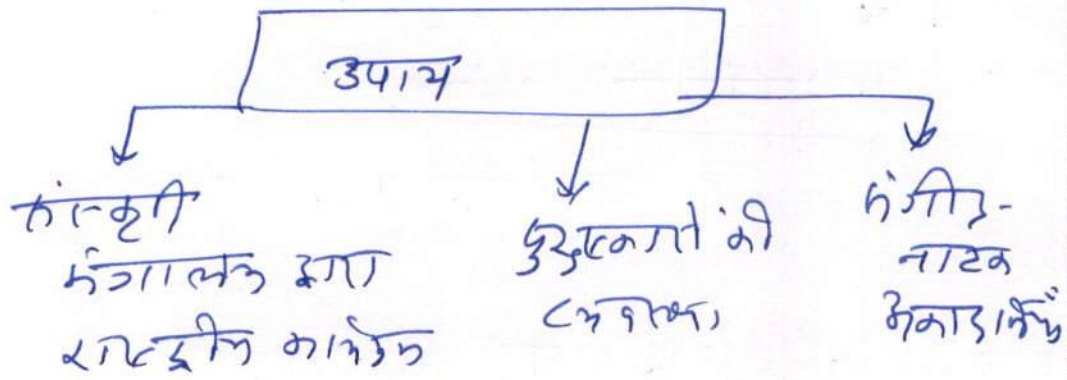 उपाय
संस्कृति
मंत्रालय द्वारा
राष्ट्रीय कार्यक्रम
पुरुस्कारों की
व्यवस्था
संगीत-
नाटक
अकादमियाँ